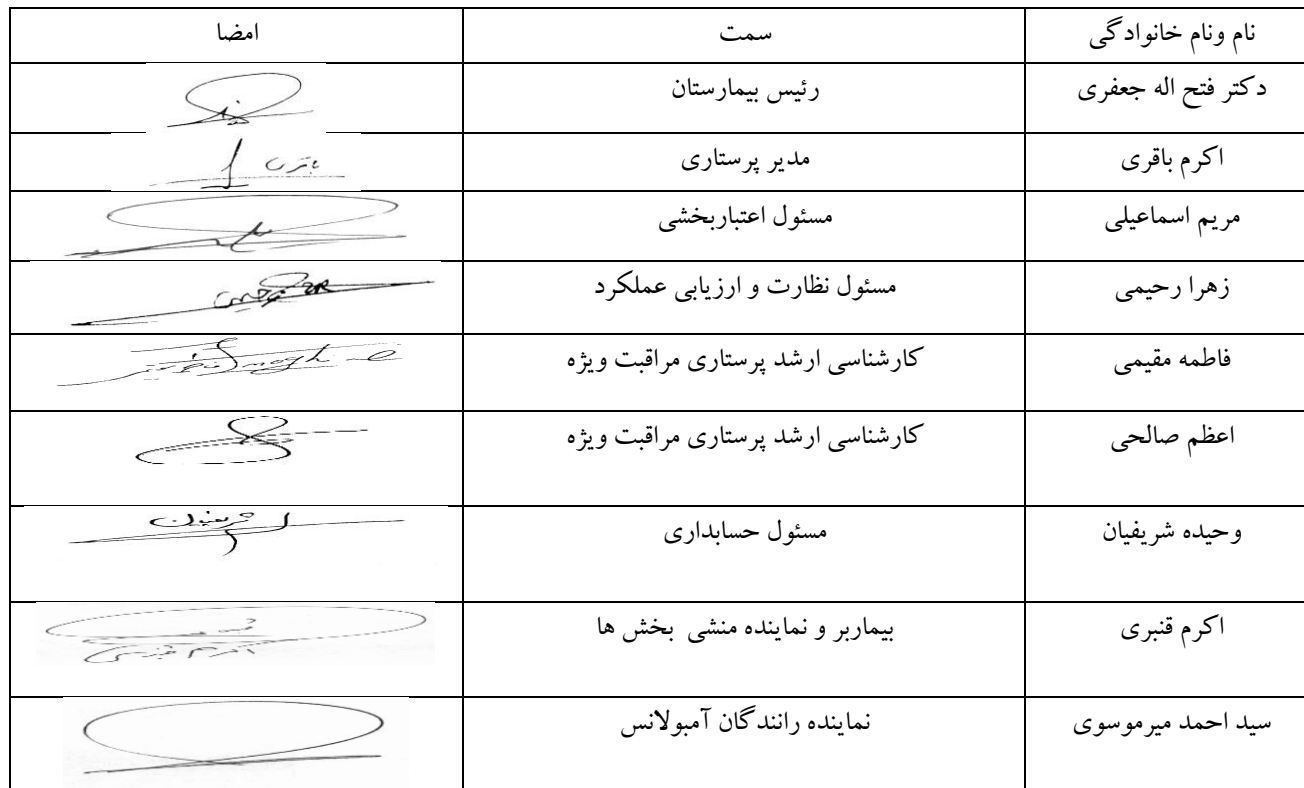 نام ونام خانوادگی سمت امضا
دکتر فتح اله جعفری رئیس بیمارستان
اکرم باقری مدیر پرستاری باقری
مریم اسماعیلی مسئول اعتباربخشی
زهرا رحیمی مسئول نظارت و ارزیابی عملکرد
فاطمه مقیمی کارشناسی ارشد پرستاری مراقبت ویژه
اعظم صالحی کارشناسی ارشد پرستاری مراقبت ویژه
وحیده شریفیان مسئول حسابداری شریفیان
اکرم قنبری بیماربر و نماینده منشی بخش ها اکرم قنبری
سید احمد میرموسوی نماینده رانندگان آمبولانس